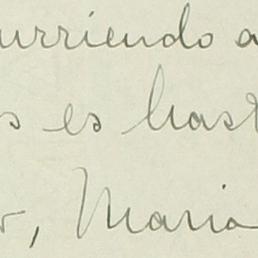 urriendo a
s es hast
, Maria